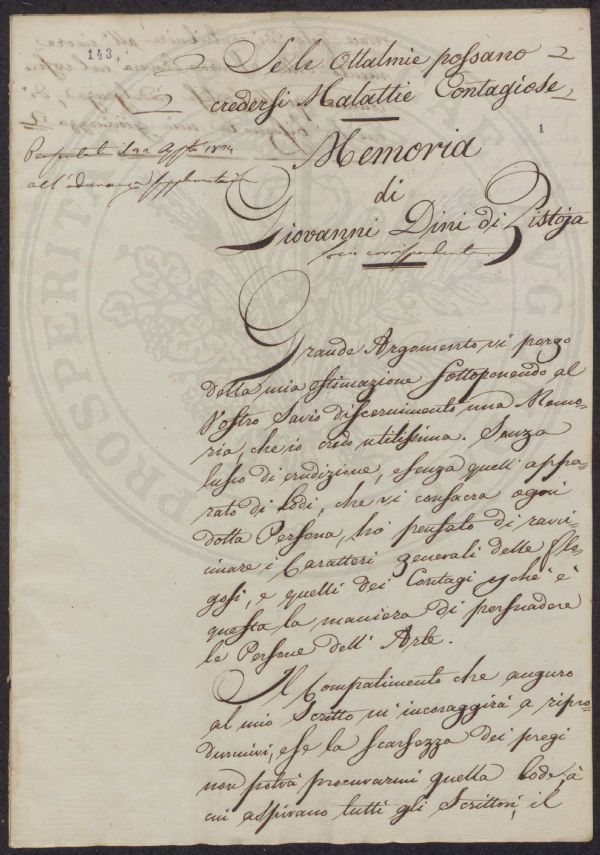 143
Se le Ottalmie possano
credersi Malattie Contagiose
1
Memoria
di
Giovanni Dini di Pistoja
socio corrispondente
all'adunanza
Grande Argomento vi porgo
della mia estimazione sottoponendo al
Vostro Savio discernimento una Memo-
ria, che io credo utilissima. Senza
lusso di erudizione, e senza quell'appa-
rato di Lodi, che vi consacra ogni
dotta Persona, ho pensato di ravvi-
cinare i Caratteri generali delle flo-
gosi, e quelli dei Contagi pchè è
questa la maniera di persuadere
le Persone dell'Arte.
Il Compatimento che auguro
al mio Scritto m'incoraggirà a ripro-
durmivi, e se la scarsezza dei pregi
non potrà procurarmi quella lode, a
cui aspirano tutti gli Scrittori, il
PROSPERITA
AUG